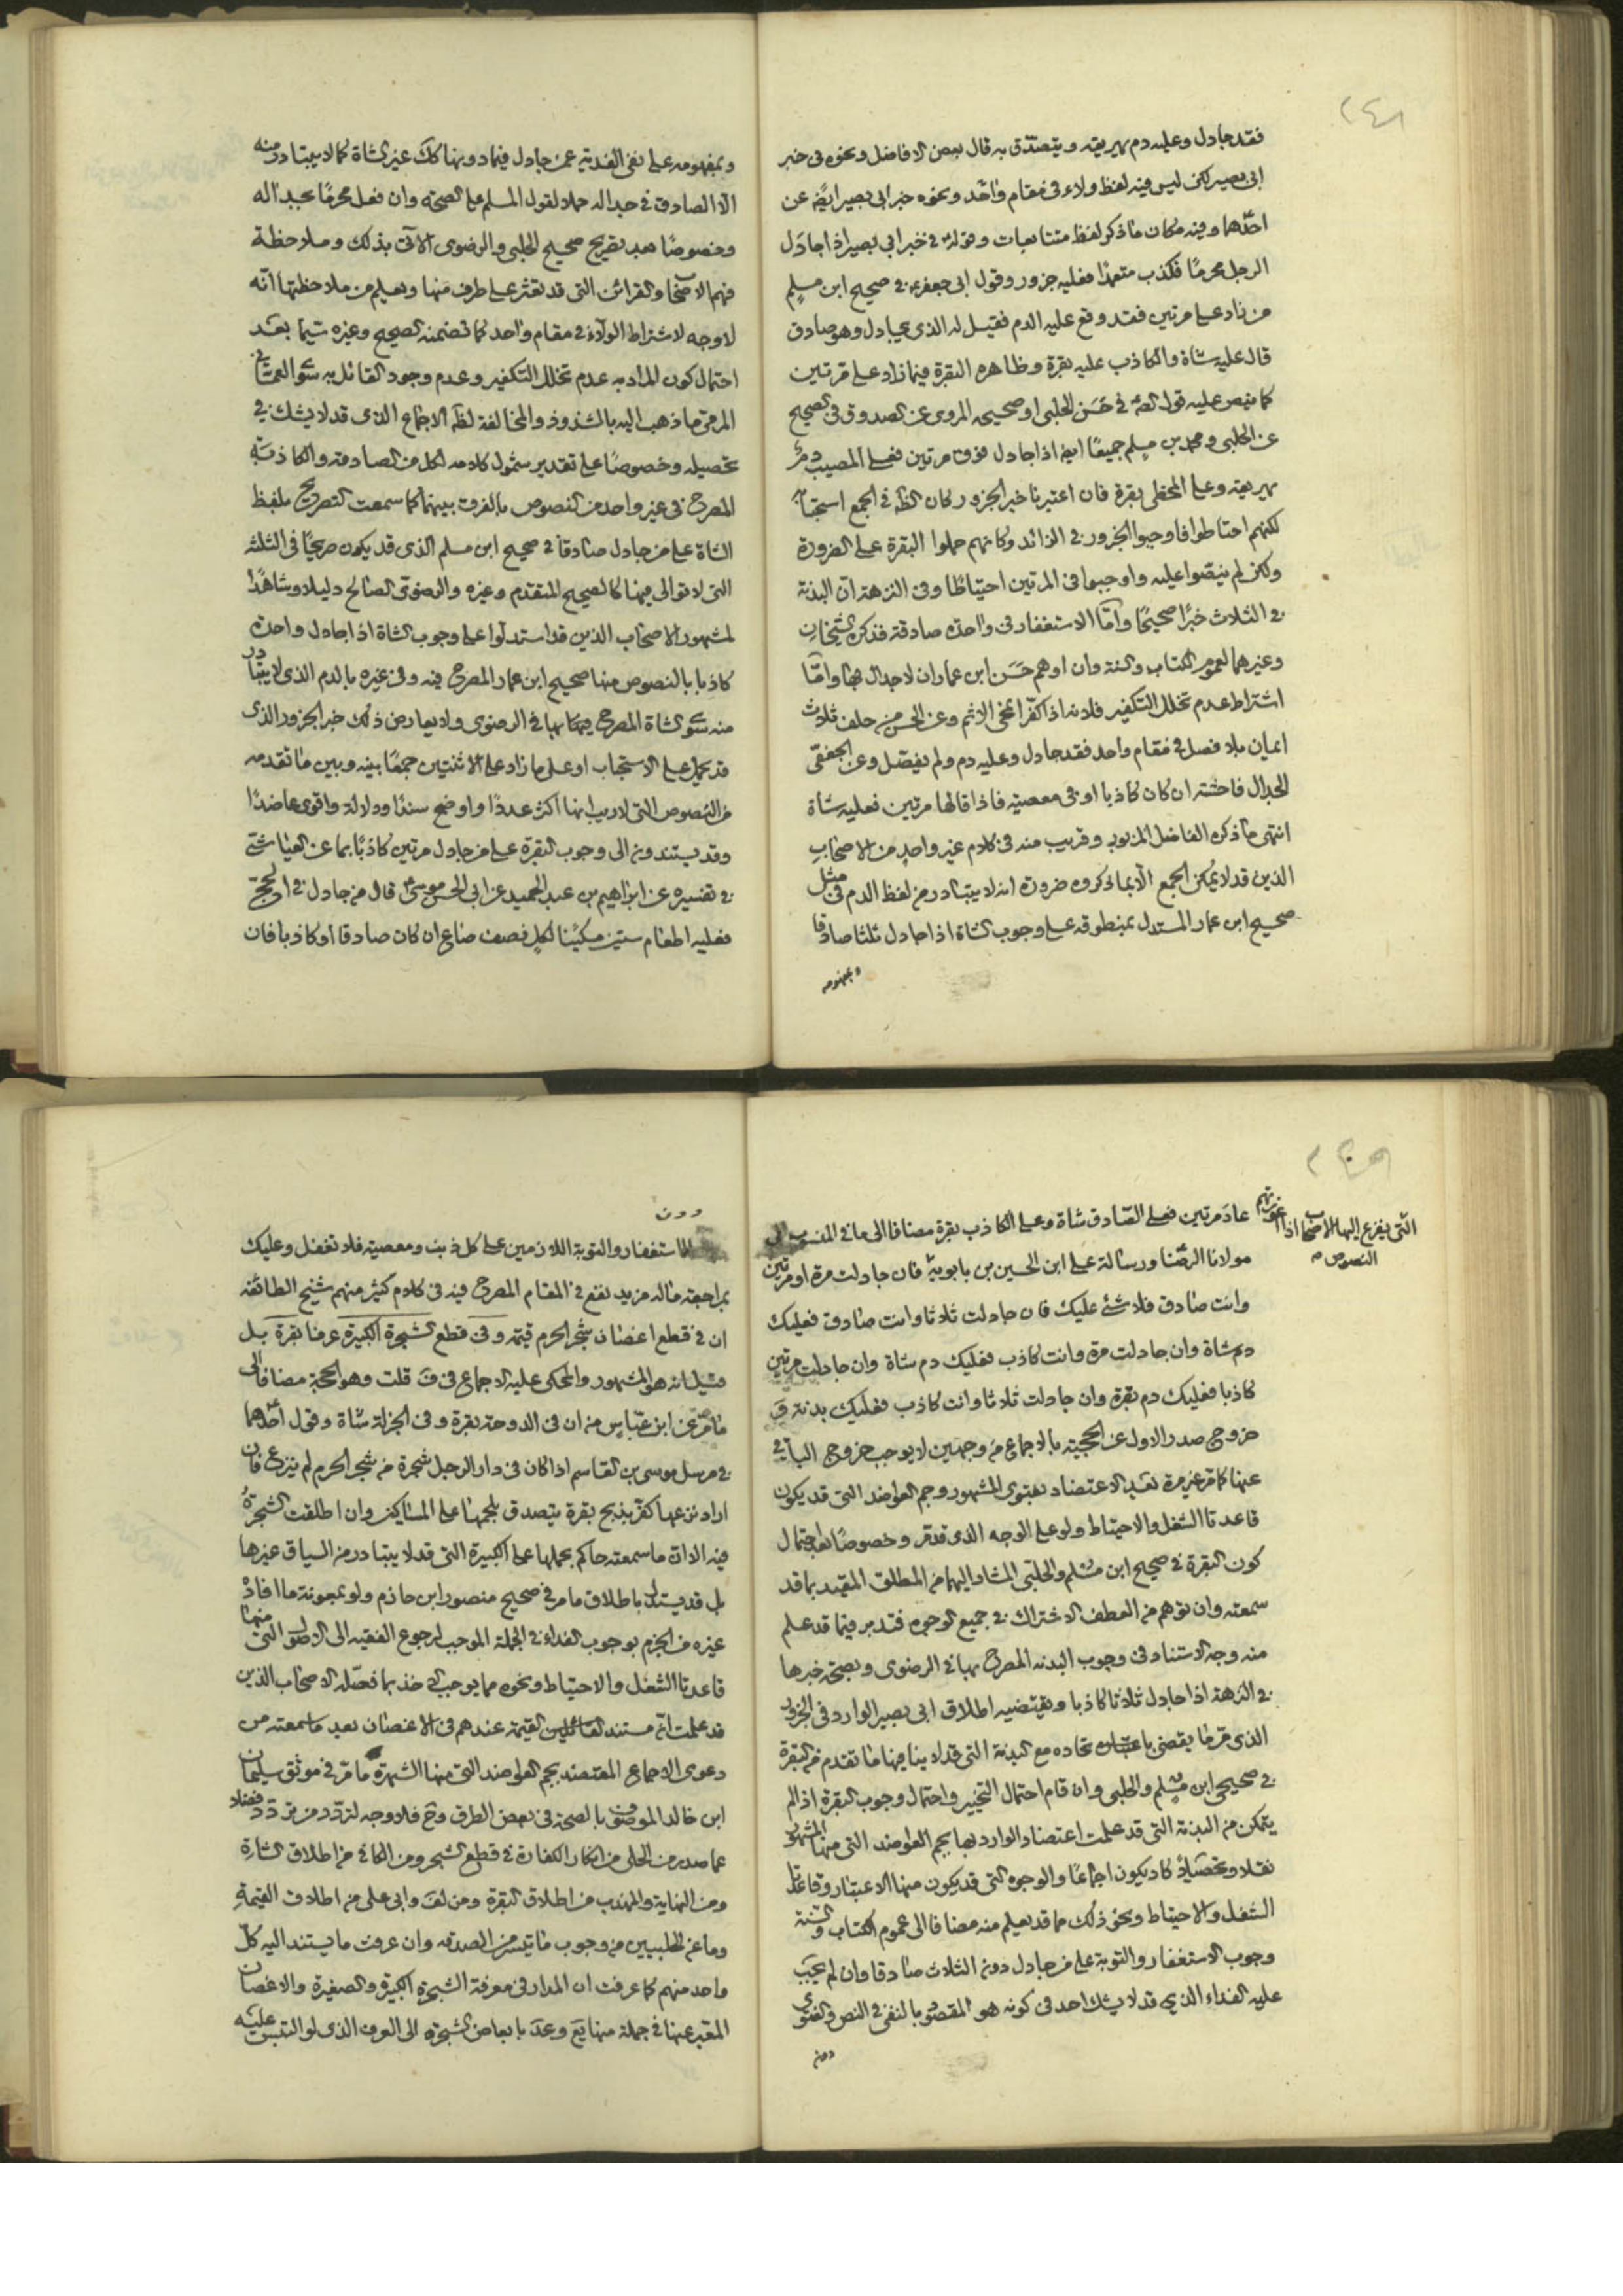 ٢٤٨
فقد جادل وعليه دم يهريقه ويتصدّق به قال بعض الافاضل ونحوه فى خبر
ابى بصير لكن ليس فيه لفظ ولاء فى مقام واحد ونحوه خبر ابى بصير ايضًا عن
احدهما وفيه مكان ما ذكر لفظ متتابعات وقوله فى خبر ابى بصير اذا جادل
الرجل محرمًا فكذب متعمدًا فعليه جزور وقول ابى جعفر فى صحيح ابن مسلم
من زاد على مرتين فقد وقع عليه الدم فقيل له الذى يجادل وهو صادق
قال عليه شاة والكاذب عليه بقرة وظاهره البقرة فيما زاد على مرتين
كما ينص عليه قول الصـ فى حَسَن الحلبى او صحيحه المروى عن الصدوق فى الصحيح
عن الحلبى ومحمد بن مسلم جميعًا ايضا اذا جادل فوق مرتين فعلى المصيب دم
يهريقه وعلى المخطى بقرة فان اعتبرنا خبر الجزور كان الظ فى الجمع استحبابه
لكنهم احتاطوا فاوجبوا الجزور فى الزائد وكانهم حملوا البقرة على الضرورة
ولكن لم ينصّوا عليه واوجبوها فى المرتين احتياطا وفى النزهة ان البدنة
فى الثلاث خبرًا صحيحًا وامّا الاستغفار فى واحدة صادقة فذكره الشيخان
وغيرهما لعموم الكتاب والسنة وان اوهم حَسَن ابن عمار ان لا جدال بها وامّا
اشتراط عدم تخلل التكفير فلانه اذا كفّر انمحى الاثم وعن الحسن من حلف ثلاث
ايمان بلا فصل فى مقام واحد فقد جادل وعليه دم ولم يفصّل وعن الجعفى
الجدال فاحشة ان كان كاذبا او فى معصية فاذا قالها مرتين فعليه شاة
انتهى ما ذكره الفاضل المزبور وقريب منه فى كلام غير واحد من الاصحاب
الذين قد لا يمكن الجمع الّا بما ذكروه ضرورة انه لا يتبادر من لفظ الدم فى مثل
صحيح ابن عمار المستدل بمنطوقه على وجوب الشاة اذا جادل ثلثا صادقا
وبمفهومه
وبمفهومه على نفى الفدية عمن جادل فيما دونها كك غير الشاة كما لا يتبادر منه
الّا الصادق فى جداله حملا لقول المسلم على الصحة وان فعل محرمًا بجداله
وخصوصًا بعد تصريح صحيح الحلبى والرضوى الآتى بذلك وملاحظة
فهم الاصحاب والقرائن التى قد تعثر على طرف منها ويعلم من ملاحظتها انّه
لا وجه لاشتراط الولاء فى مقام واحد كما تضمنه الصحيح وغيره سيّما بعد
احتمال كون المراد به عدم تخلل التكفير وعدم وجود القائل به سوى العمانى
المرمى ما ذهب اليه بالشذوذ والمخالفة لظ الاجماع الذى قد لا يشك فى
تحصيله وخصوصًا على تقدير شمول كلامه لكل من الصادقة والكاذبة
المصرح فى غير واحد من النصوص بالفرق بينهما كما سمعت التصريح بلفظ
الشاة على من جادل صادقا فى صحيح ابن مسلم الذى قد يكون صريحًا فى الثلثه
التى لا توالى فيها كالصحيح المتقدم وغيره والرضوى الصالح دليلا وشاهدًا
لمشهور الاصحاب الذين قد استدلوا على وجوب الشاة اذا جادل واحدة
كاذبا بالنصوص منها صحيح ابن عمار المصرح فيه وفى غيره بالدم الذى لا يتبادر
منه سوى الشاة المصرح بها فى الرضوى ولا يعارض ذلك خبر الجزور الذى
قد يحمل على الاستحباب او على ما زاد على الاثنتين جمعًا بينه وبين ما تقدمه
من النصوص التى لا ريب انها اكثر عددًا واوضح سندًا ودلالة واقوى عاضدًا
وقد يستندون الى وجوب البقرة على من جادل مرتين كاذبًا بما عن العياشى
فى تفسيره عن ابراهيم بن عبد الحميد عن ابى الحسن موسى قال من جادل فى الحج
فعليه اطعام ستين مسكينا لكل نصف صاع ان كان صادقا او كاذبا فان
التى يفزع اليها الاصحاب اذا
النصوص م
عاد مرتين فعلى الصّادق شاة وعلى الكاذب بقرة مضافا الى ما فى المنسوب الى
مولانا الرضا ورسالة على ابن الحسين بن بابويه فان جادلت مرة او مرتين
وانت صادق فلا شئ عليك فان جادلت ثلاثا وانت صادق فعليك
دم شاة وان جادلت مرة وانت كاذب فعليك دم شاة وان جادلت مرتين
كاذبا فعليك دم بقرة وان جادلت ثلاثا وانت كاذب فعليك بدنة و
خروج صدر الاول عن الحجية بالاجماع من وجهين لا يوجب خروج الباقى
عنها كما مر غير مرة بعد الاعتضاد بفتوى المشهور وجم العواضد التى قد يكون
قاعدتا الشغل والاحتياط ولو على الوجه الذى قد مر وخصوصًا بعد احتمال
كون البقرة فى صحيح ابن مسلم والحلبى المشار اليهما من المطلق المقيد بما قد
سمعته وان توهم من العطف الاشتراك فى جميع الوجوه فتدبر فيما قد علم
منه وجه الاستناد فى وجوب البدنه المصرح بها فى الرضوى وبصحة خبرها
فى النزهة اذا جادل ثلاثا كاذبا ويقتضيه اطلاق ابى بصير الوارد فى الجزور
الذى مر ما يقضى باعتبار تحاده مع البدنة التى قد لا ينافيها ما تقدم من البقرة
فى صحيحى ابن مسلم والحلبى وان قام احتمال التخيير واحتمال وجوب البقرة اذا لم
يتمكن من البدنة التى قد علمت اعتضاد الوارد بها بجم العواضد التى منها المشهور
نقلا وتحصيلا كاد يكون اجماعًا والوجوه التى قد يكون منها الاعتبار وقاعدتا
الشغل والاحتياط ونحو ذلك مما قد يعلم منه مضافا الى عموم الكتاب والسنة
وجوب الاستغفار والتوبة على من جادل دون الثلاث صادقا وان لم يجب
عليه الفداء الذى قد لا يشك احد فى كونه هو المقصود بالنفى فى النص والفتوى
دون
دون
الاستغفار والتوبة اللازمين على كل ذنب ومعصية فلا تغفل وعليك
بمراجعة ما له مزيد نفع فى المقام المصرح فيه فى كلام كثير منهم شيخ الطائفة
ان فى قطع اغصان شجر الحرم قيمته وفى قطع الشجرة الكبيرة عرفا بقرة بل
قيل انه هو المشهور والمحكى عليه الاجماع فى ف قلت وهو الحجة مضافا الى
ما مر عن ابن عباس من ان فى الدوحة بقرة وفى الجزلة شاة وقول احدهما
فى مرسل موسى بن القاسم اذا كان فى دار الرجل شجرة من شجر الحرم لم ينزع فان
اراد نزعها كفّر بذبح بقرة يتصدق بلحمها على المساكين وان اطلقت الشجرة
فيه الا ان ما سمعته حاكم بحملها على الكبيرة التى قد لا يتبادر من السياق غيرها
بل قد يستدل باطلاق ما مر فى صحيح منصور ابن حازم ولو بمعونة ما افاده
غيره من الجزم بوجوب الفداء فى الجملة الموجب لرجوع الفقيه الى الاصول التى منها
قاعدتا الشغل والاحتياط ونحوه مما يوجب الاخذ بما فصّله الاصحاب الذين
قد علمت انّ مستند القائلين القيمة عندهم فى الاغصان بعد ما سمعته من
دعوى الاجماع المعتضد بجم العواضد التى منها الشهرة ما مر فى موثق سليمان
ابن خالد الموصوف بالصحة فى بعض الطرق وح فلا وجه لتردّد من تردّد فضلا
عما صدر من الحلى من انكار الكفارة فى قطع الشجر ومن الكافى من اطلاق الشاة
ومن النهاية والمهذب من اطلاق البقرة ومن لف وابى على من اطلاق القيمة
وما عن الحلبيين من وجوب ما تيسر من الصدقه وان عرفت ما يستند اليه كل
واحد منهم كما عرفت ان المدار فى معرفة الشجرة الكبيرة والصغيرة والاغصان
المعبر عنها فى جملة منها يع وعد بابعاض الشجرة الى العرف الذى لو التبس عليه